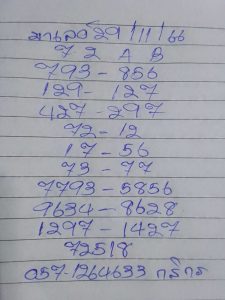 มาเลย์ 29/11/66
7 2 A B
793 - 856
129 - 127
427 - 297
72 - 12
17 - 56
73 - 77
7793 - 5856
9634 - 8628
1297 - 1427
72518
057-1264633